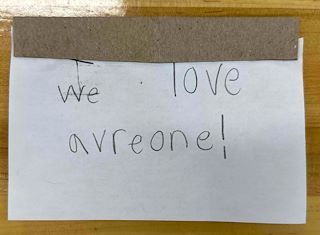 We love
avreone!